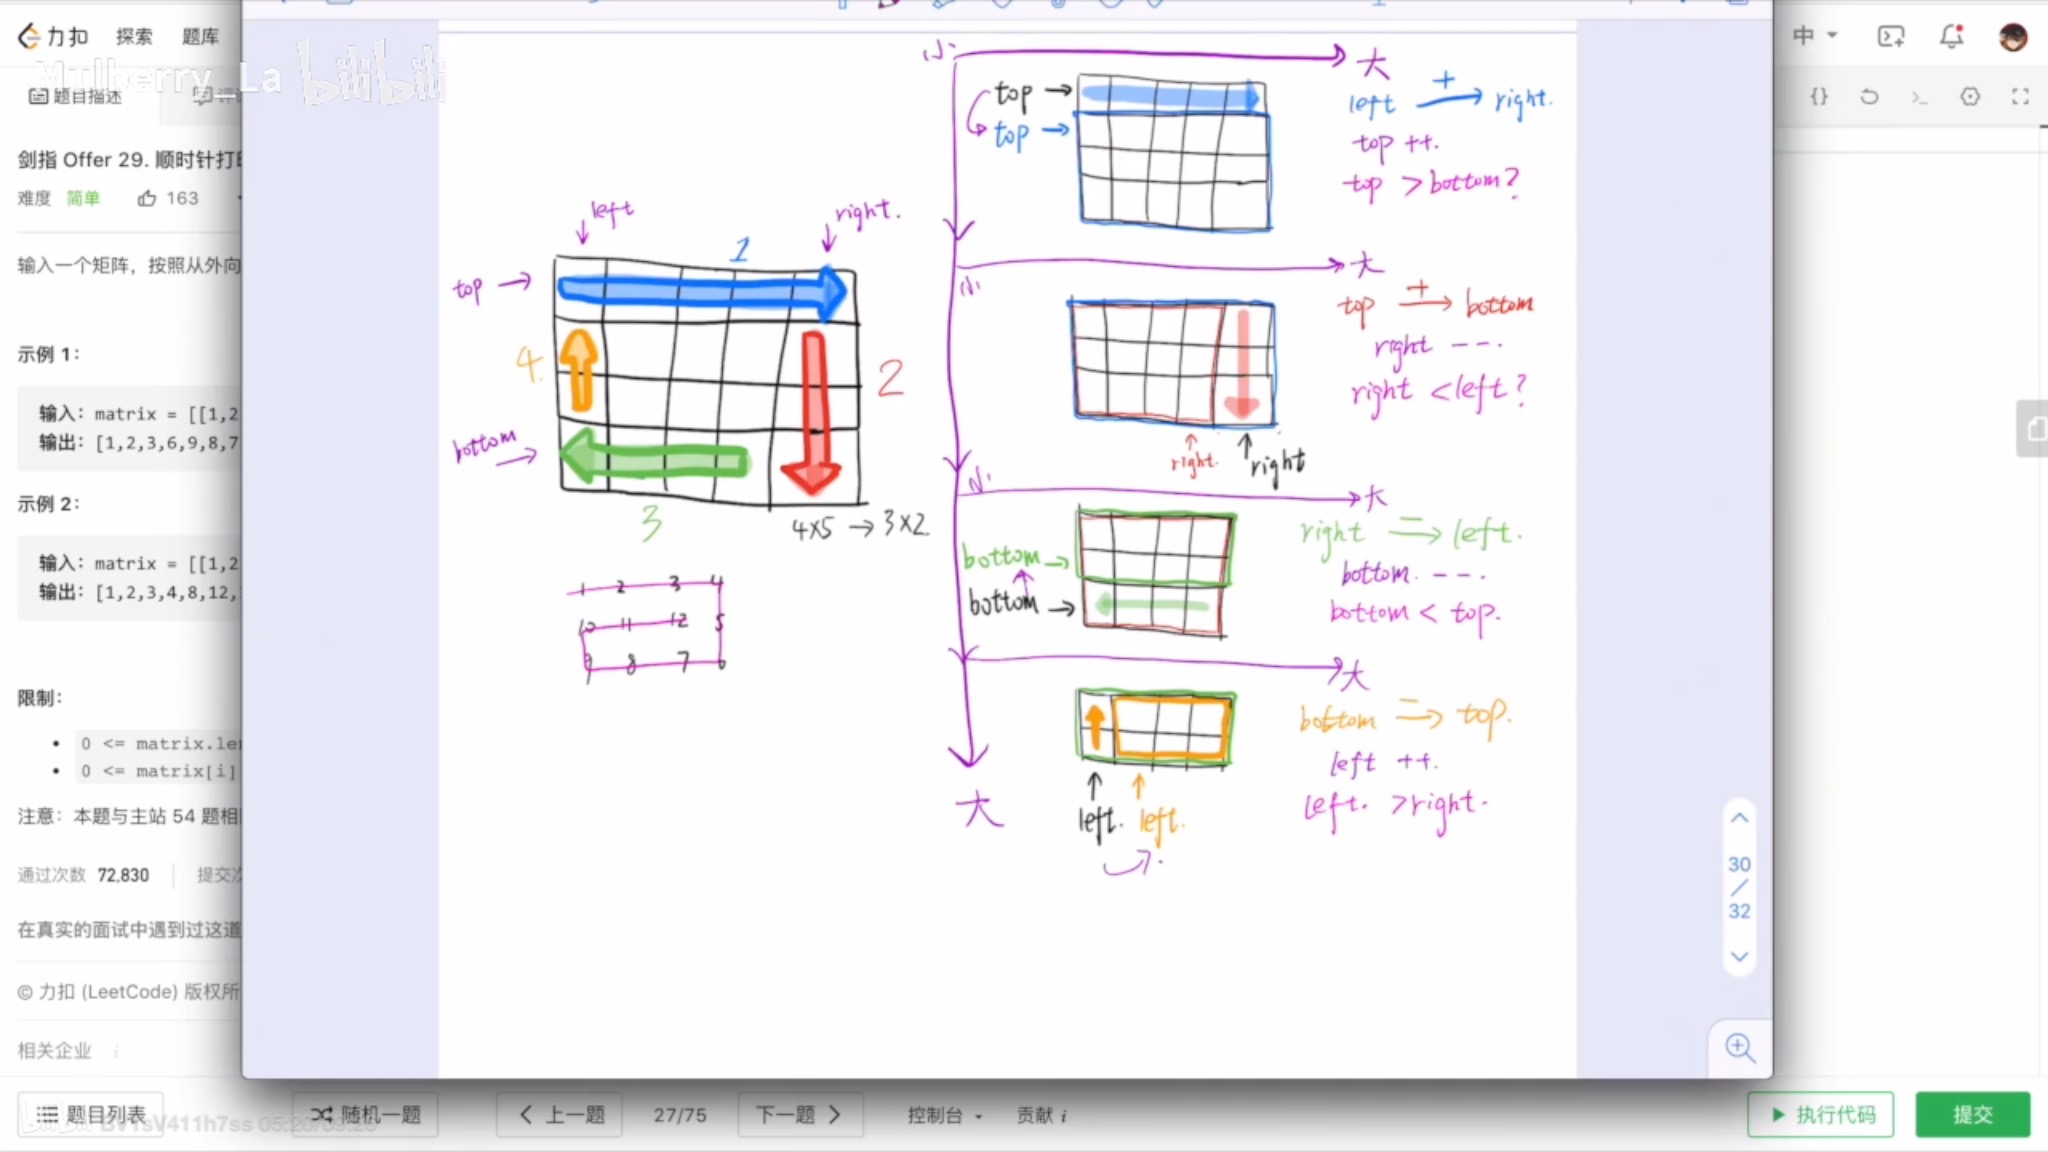 力扣 探索 题库
Mulberry_La bilibili
中
题目描述
剑指 Offer 29. 顺时针打印
难度 简单 163
输入一个矩阵，按照从外向
示例 1：
输入：matrix = [[1,2
输出：[1,2,3,6,9,8,7
示例 2：
输入：matrix = [[1,2
输出：[1,2,3,4,8,12,
限制：
0 <= matrix.le
0 <= matrix[i]
注意：本题与主站 54 题相
通过次数 72,830 提交次
在真实的面试中遇到过这道
© 力扣 (LeetCode) 版权所
相关企业 i
left right.
1
top
4. 2
bottom
3
4×5 → 3×2.
1 2 3 4
10 11 12 5
9 8 7 6
小 大
top
top
left + → right.
top ++.
top > bottom?
小 大
top + → bottom
right --.
right < left?
right. right
小 大
bottom
bottom
right → left.
bottom. --.
bottom < top.
大
bottom → top.
left ++.
left. > right.
left. left.
大
30
/
32
题目列表 随机一题 上一题 27/75 下一题 控制台 贡献 i 执行代码 提交